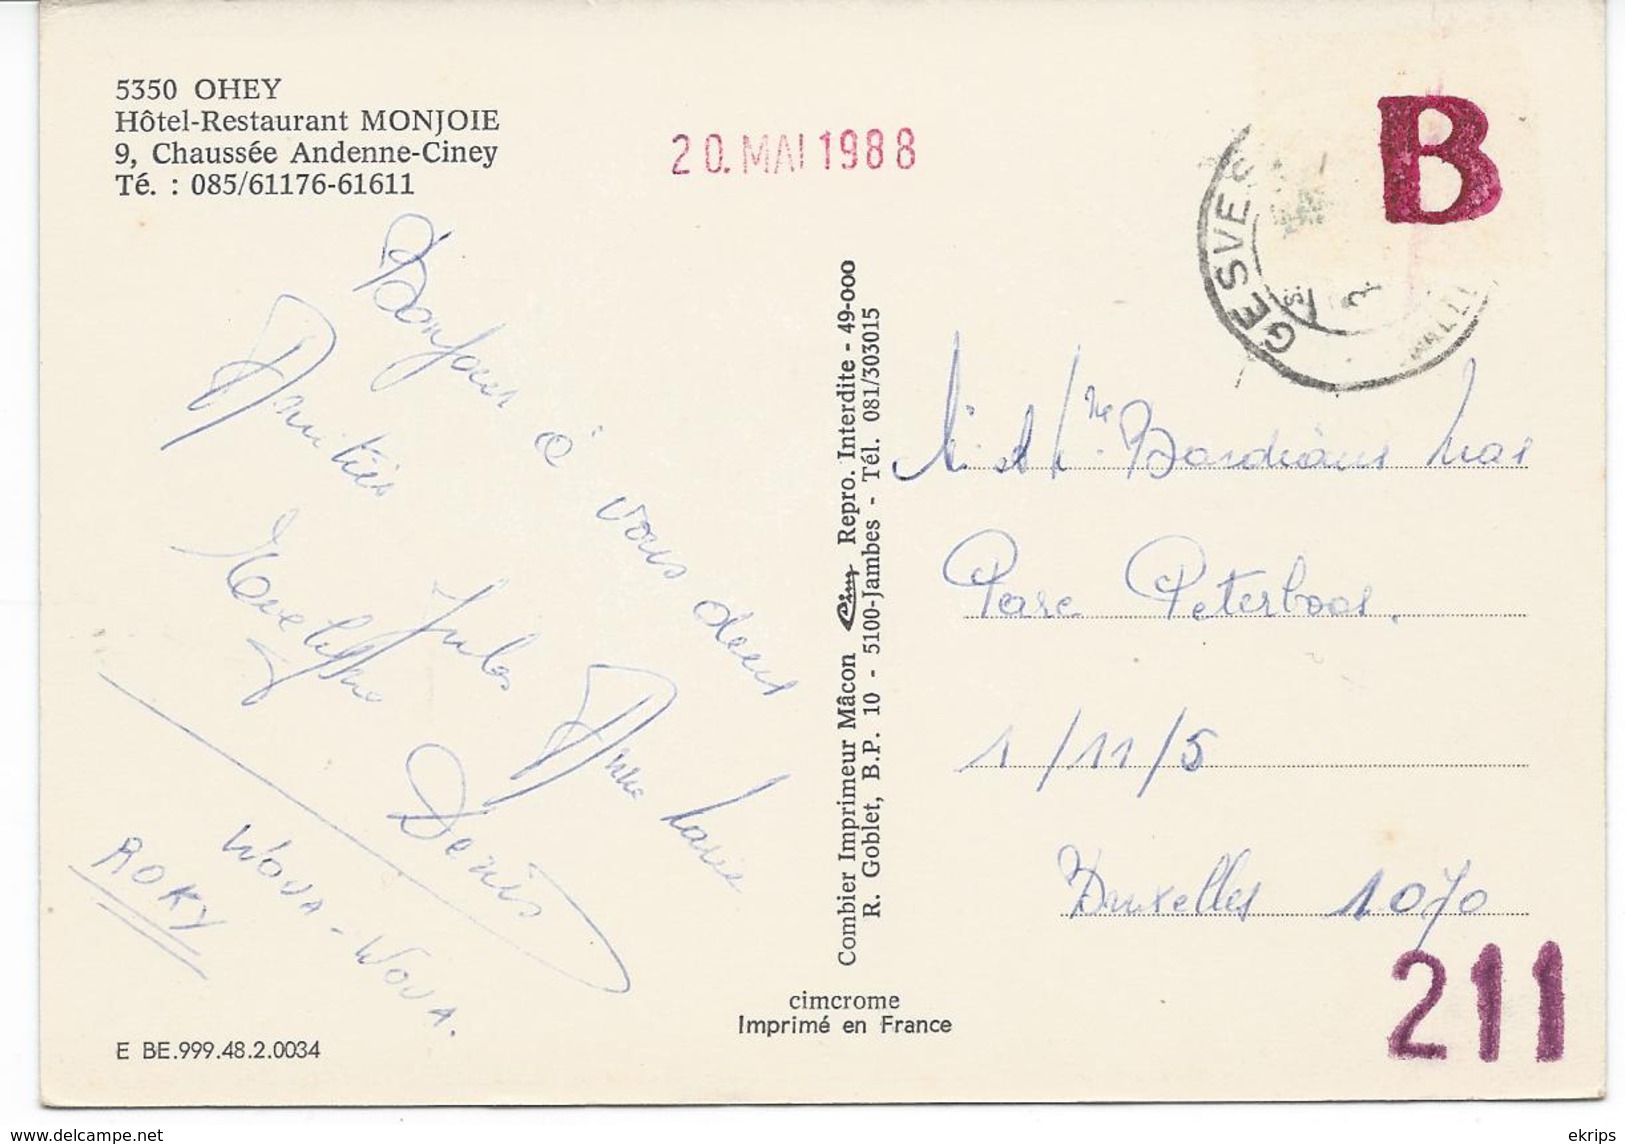 5350 OHEY
Hôtel-Restaurant MONJOIE
9, Chaussée Andenne-Ciney
Té. : 085/61176-61611
20. MAI 1988
B
GESVES
Bonjour à vous deux
Amitiés
Evelyne Jules Anne Marie
Denis
WOUA-WOUA.
ROKY
Combier Imprimeur Mâcon Cim Repro. Interdite - 49-000
R. Goblet, B.P. 10 - 5100-Jambes - Tél. 081/303015
M. et Mme
Parc Peterbos.
1/11/5
Bruxelles 1070
211
cimcrome
Imprimé en France
E BE.999.48.2.0034
www.delcampe.net
ekrips